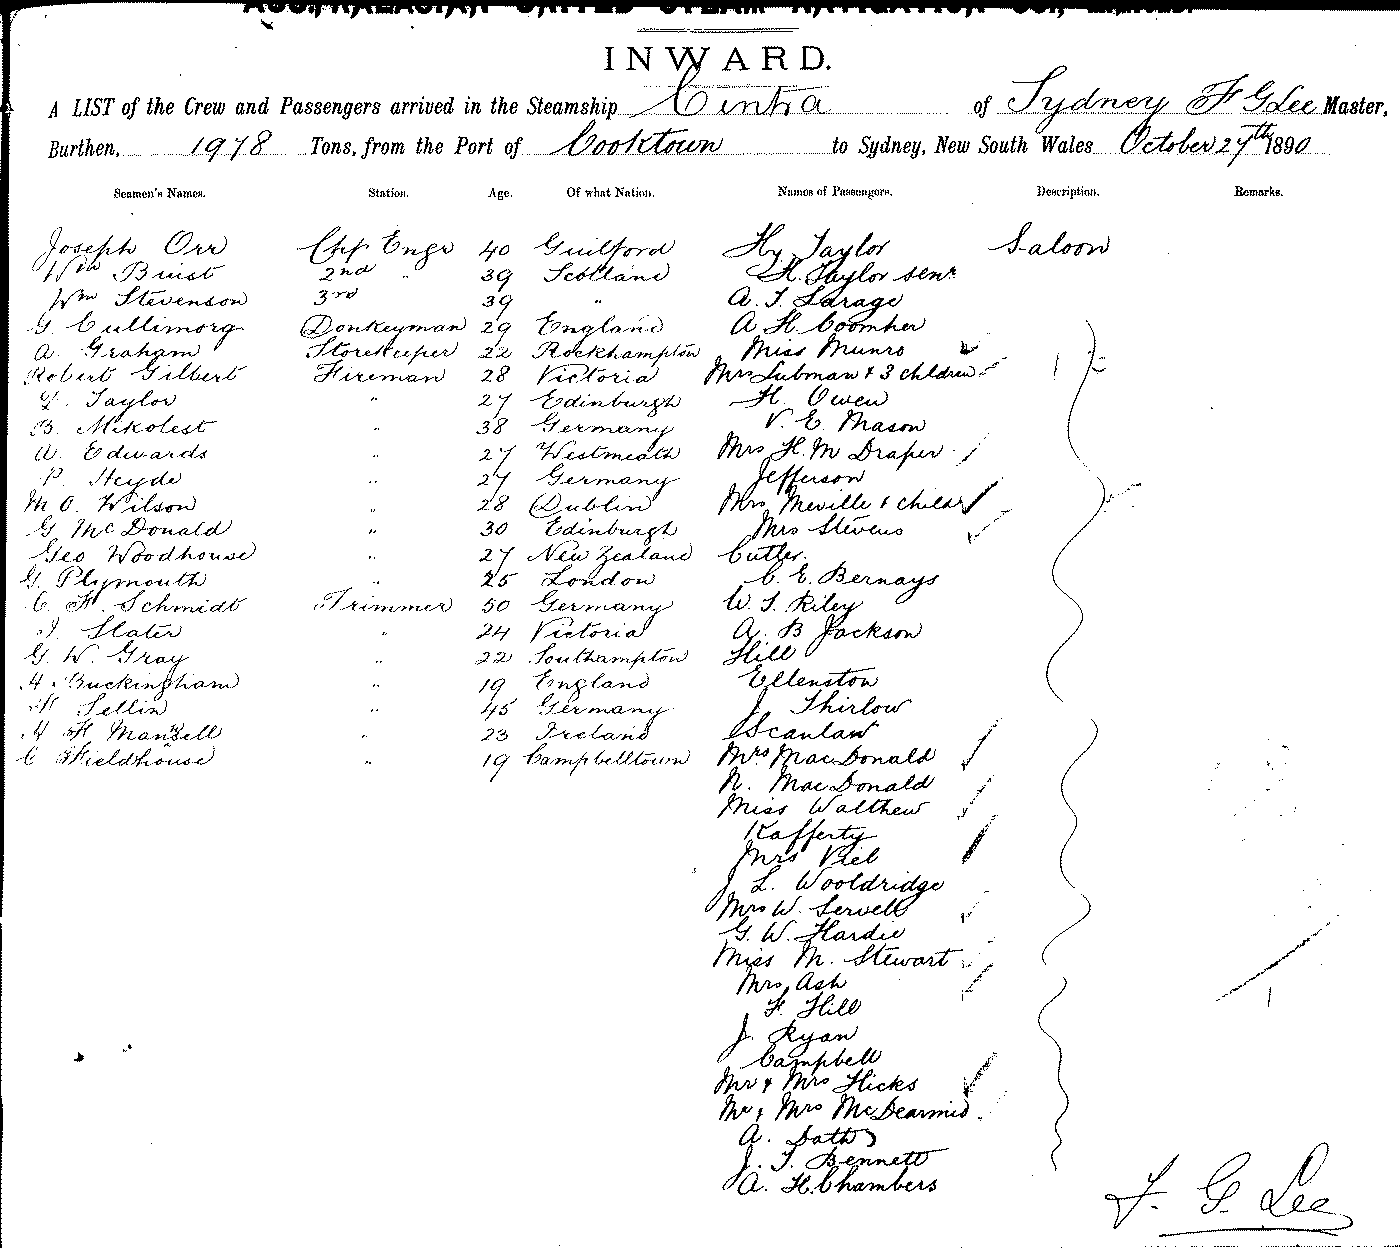 AUSTRALASIAN UNITED STEAM NAVIGATION CO., LIMITED.
INWARD.
A LIST of the Crew and Passengers arrived in the Steamship Cintra of Sydney F G Lee Master,
Burthen, 1978 Tons, from the Port of Cooktown to Sydney, New South Wales October 27th 1890
Seamen's Names. Station. Age. Of what Nation. Names of Passengers. Description. Remarks.
Joseph Orr Chf Engr 40 Guilford Hy Taylor Saloon
Wm Buist 2nd " 39 Scotland H. Taylor senr
Wm Stevenson 3rd 39 " A. T. Larage
G. Cullimorg Donkeyman 29 England A H Coomher
A. Graham Storekeeper 22 Rockhampton Miss Munro
Robert Gilbert Fireman 28 Victoria Mrs Lubman & 3 children
Taylor " 27 Edinburgh H. Owen
B. Mikolest " 38 Germany V. E. Mason
A. Edwards " 27 Westmeath Mrs H. M Draper
P. Heyde " 27 Germany Jefferson
M O. Wilson " 28 Dublin Mrs Meville & child
G McDonald " 30 Edinburgh Mrs Stevens
Geo Woodhouse " 27 New Zealand Cutler.
G. Plymouth " 25 London C. E. Bernays
C. H. Schmidt Trimmer 50 Germany W. T. Riley
J. Slater " 24 Victoria A. B Jackson
G. W. Gray " 22 Southampton Hill
H. Buckingham " 19 England Ellenston
Sellin " 45 Germany J. Thirlow
H H Mansell " 23 Ireland Scanlan
C Fieldhouse " 19 Campbelltown Mrs MacDonald
N. MacDonald
Miss Walthew
Rafferty
Mrs Viel
J L. Wooldridge
Mrs W. Servell
G. W. Hardie
Miss M. Stewart
Mrs Ash
F. Hill
J. Ryan
Campbell
Mr & Mrs Hicks
Mr & Mrs McDearmid
A. Dath
J. T. Bennett
A. H. Chambers
F. G. Lee